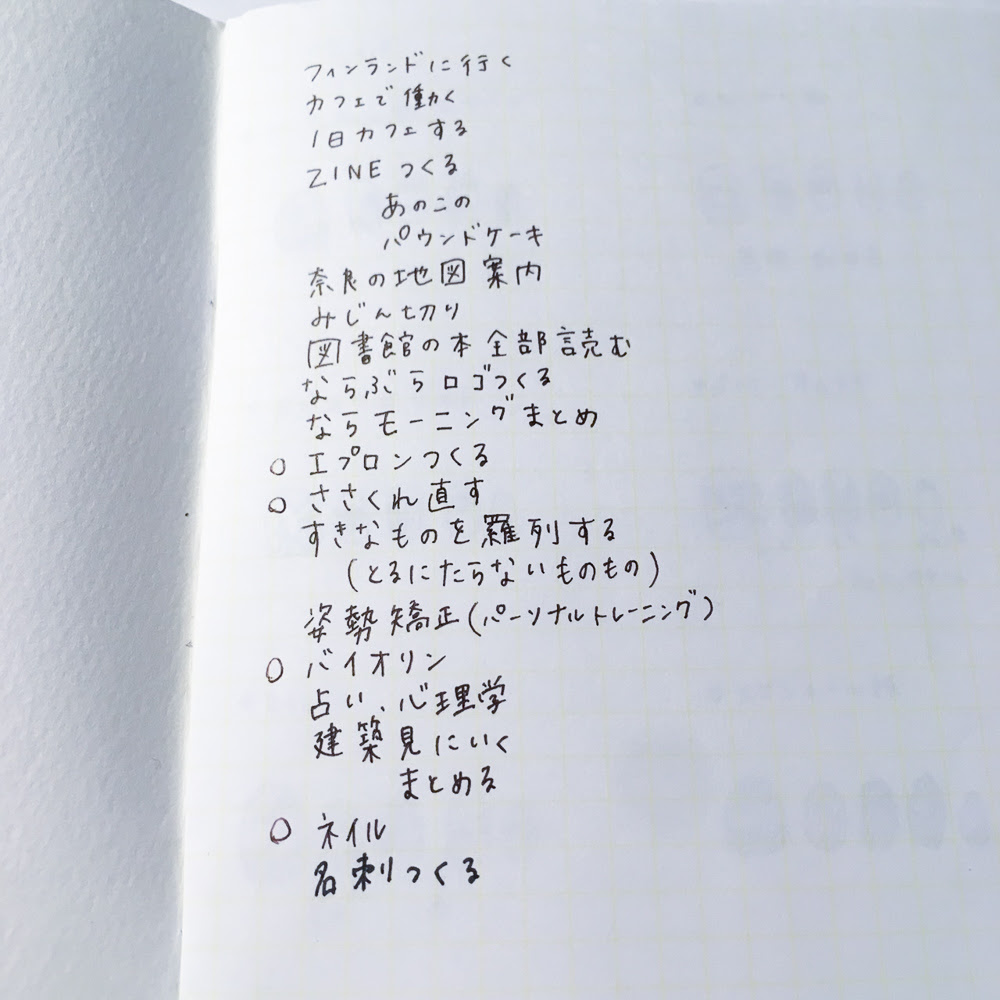 フィンランドに行く
カフェで働く
1日カフェする
ZINEつくる
あのこの
パウンドケーキ
奈良の地図案内
みじん切り
図書館の本全部読む
ならぶらロゴつくる
ならモーニングまとめ
○ エプロンつくる
○ ささくれ直す
すきなものを羅列する
(とるにたらないものもの)
姿勢矯正(パーソナルトレーニング)
○ バイオリン
占い、心理学
建築見にいく
まとめる
○ ネイル
名刺つくる